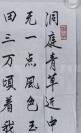 洞庭青草近中
无一点風色玉
田三万顷着我